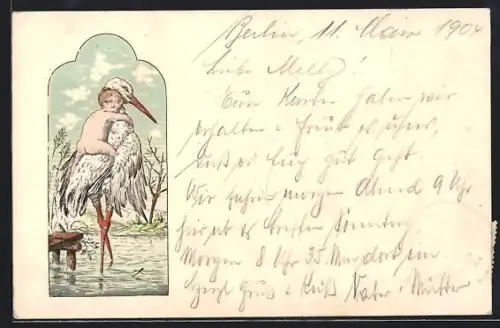 Berlin, 11. Mai 1904
Liebe Melly!
Eure Karten haben wir
erhalten u. freut es uns,
daß es Euch gut geht.
Wir fahren morgen Abend 9 Uhr
hier ab u. treffen Sonntag
Morgen 8 Uhr 35 Min dort ein.
Herzl. Gruß u. Kuß Vater u. Mutter